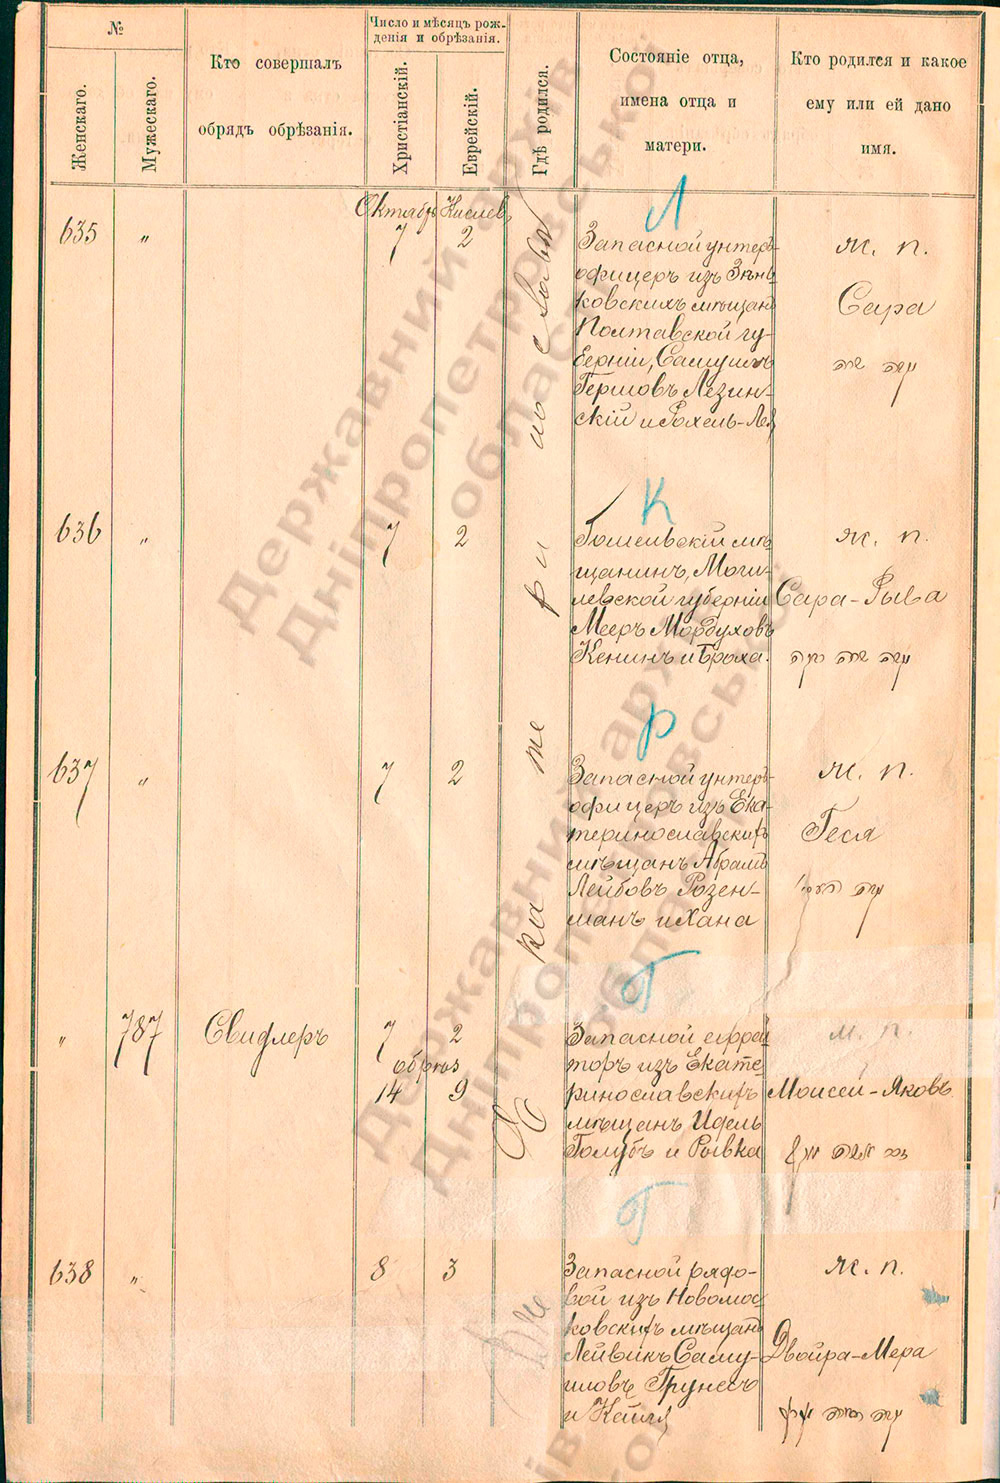 №
Женскаго.
Мужескаго.
Кто совершалъ
обрядъ обрѣзанія.
Число и мѣсяцъ рож-
денія и обрѣзанія.
Христіанскій.
Еврейскій.
Гдѣ родился.
Состояніе отца,
имена отца и
матери.
Кто родился и какое
ему или ей дано
имя.
Октябрь Кислевъ
635 „ 7 2
Л
Запасной унтеръ-
офицеръ изъ Зѣнь-
ковскихъ мѣщанъ
Полтавской гу-
берніи, Самуилъ
Гершовъ Лезин-
скій и Рохель-Лея
ж. п.
Сара
636 „ 7 2
К
мѣ-
щанинъ, Моги-
левской губерніи
Мееръ Мордуховъ
Кенинъ и Броха.
ж. п.
Сара-Рыва
637 „ 7 2
Р
Запасной унтеръ-
офицеръ изъ Ека-
теринославскихъ
мѣщанъ Абрамъ
Лейбовъ Розен-
манъ и Хана
ж. п.
Геся
„ 787 Свидлеръ 7 2
обрѣз
14 9
Г
Запасной ефрей-
торъ изъ Екате-
ринославскихъ
мѣщанъ Идель
Голубъ и Рывка
м. п.
Моисей-Яковъ
638 „ 8 3
Г
Запасной рядо-
вой изъ Новомос-
ковскихъ мѣщанъ
Лейвикъ Саму-
иловъ Грунесъ
и Кейля
ж. п.
Двойра-Мера
Державний архів
Дніпропетровської
області
Державний архів
Дніпропетровської
області